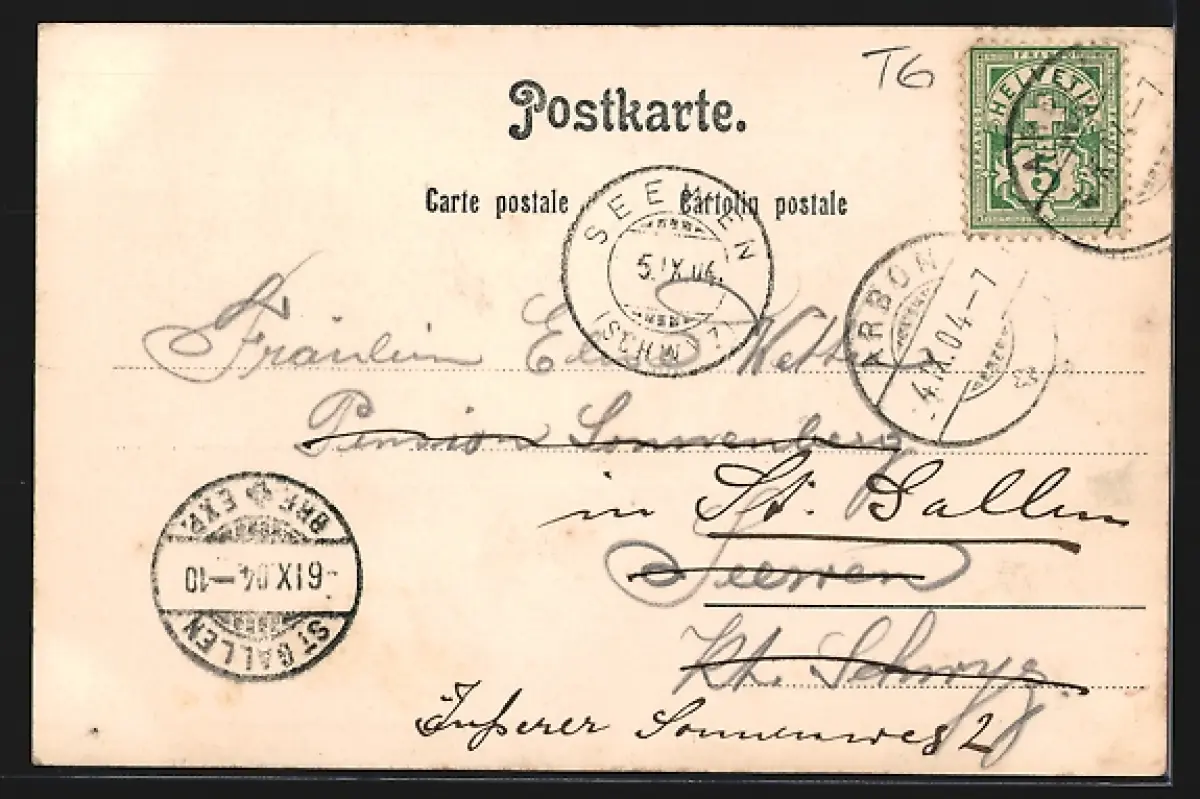 T6
Postkarte.
Carte postale Cartolin postale
HELVETIA
FRANCO
5
SEEWEN
5.IX.04.
(SCHWYZ)
ARBON
4.IX.04-7
Fräulein
Pension Sonnenberg
in St. Gallen
Seewen
Kt. Schwyz.
Äußerer Sonnenweg 2
BRF. EXP.
-6 IX.04-10
ST GALLEN